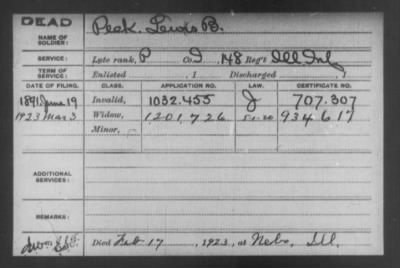 DEAD
NAME OF SOLDIER: Peck, Lewis B.
SERVICE: Late rank, P Co. I, 148 Reg't Ill Inf
TERM OF SERVICE: Enlisted , 1 Discharged , 1
DATE OF FILING. CLASS. APPLICATION NO. LAW. CERTIFICATE NO.
1891 June 19 Invalid, 1032.455 J 707.307
1923 Mar 3 Widow, 1201726 51-20 934617
Minor,
ADDITIONAL SERVICES:
REMARKS:
Died Feb 17, 1923, at Nebo, Ill.